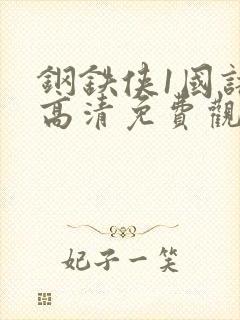 鋼鉄俠1國語
高清免費觀
妃子一笑